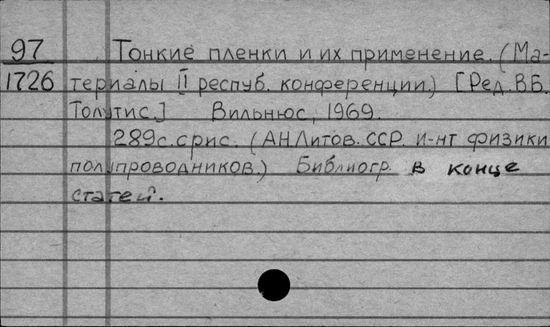 97 Тонкие пленки и их применение. (Ма-
1726 териалы II респуб. конференции.) [Ред. В.Б.
Толутис.] Вильнюс, 1969.
289с. с рис. (АН Литов. ССР. И-нт физики
полупроводников.) Библиогр. в конце
статей.